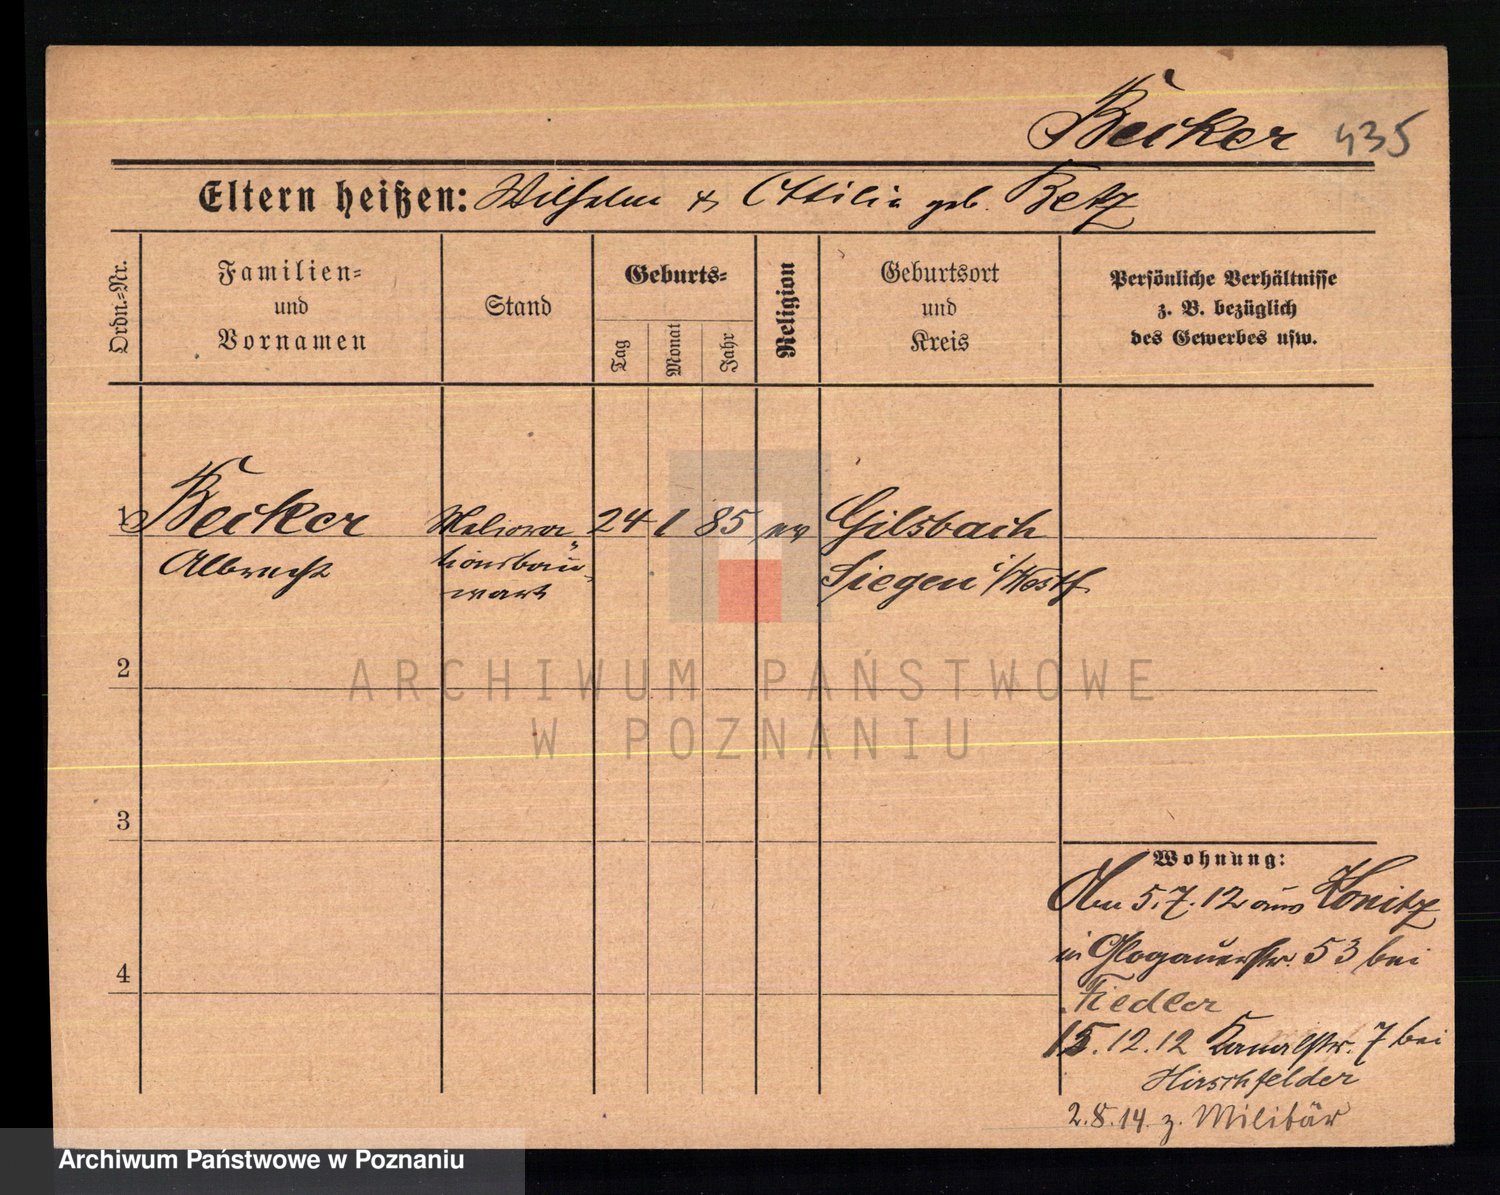 Becker 435
Eltern heißen: Wilhelm & Ottilie geb. Betz
Ordn.=Nr.
Familien=
und
Vornamen
Stand
Geburts=
Tag
Monat
Jahr
Religion
Geburtsort
und
Kreis
Persönliche Verhältnisse
z. B. bezüglich
des Gewerbes usw.
1 Becker Meliora 24 1 85 ev Gilsbach
Albrecht tionsbau= Siegen i/Westf
wart
ARCHIWUM PAŃSTWOWE
W POZNANIU
2
3
4
Wohnung:
Am 5.7.12 aus Konitz
in Glogauerstr. 53 bei
Fiedler
15.12.12 Kanalstr. 7 bei
Hirschfelder
2.8.14. z. Militär
Archiwum Państwowe w Poznaniu